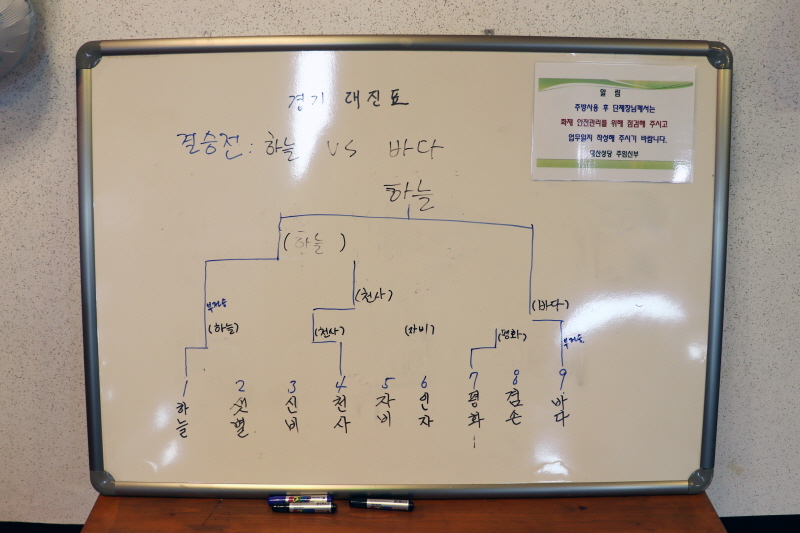 경기 대진표
결승전 : 하늘 VS 바다
하늘
(하늘)
(천사)
(바다)
부전승
(하늘)
(천사)
(자비)
(평화)
부전승
1 2 3 4 5 6 7 8 9
하늘 샛별 신비 천사 자비 인자 평화 겸손 바다
알 림
주방사용 후 단체장님께서는
화재 안전관리를 위해 점검해 주시고
업무일지 작성해 주시기 바랍니다.
주임신부